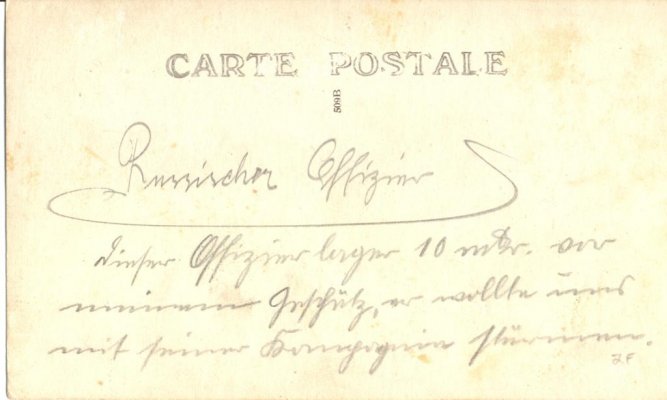 CARTE POSTALE
509B
Russischer Offizier
dieser Offizier lager 10 mtr. vor
meinem Geschütz, er wollte uns
mit seiner Kompagnie stürmen.